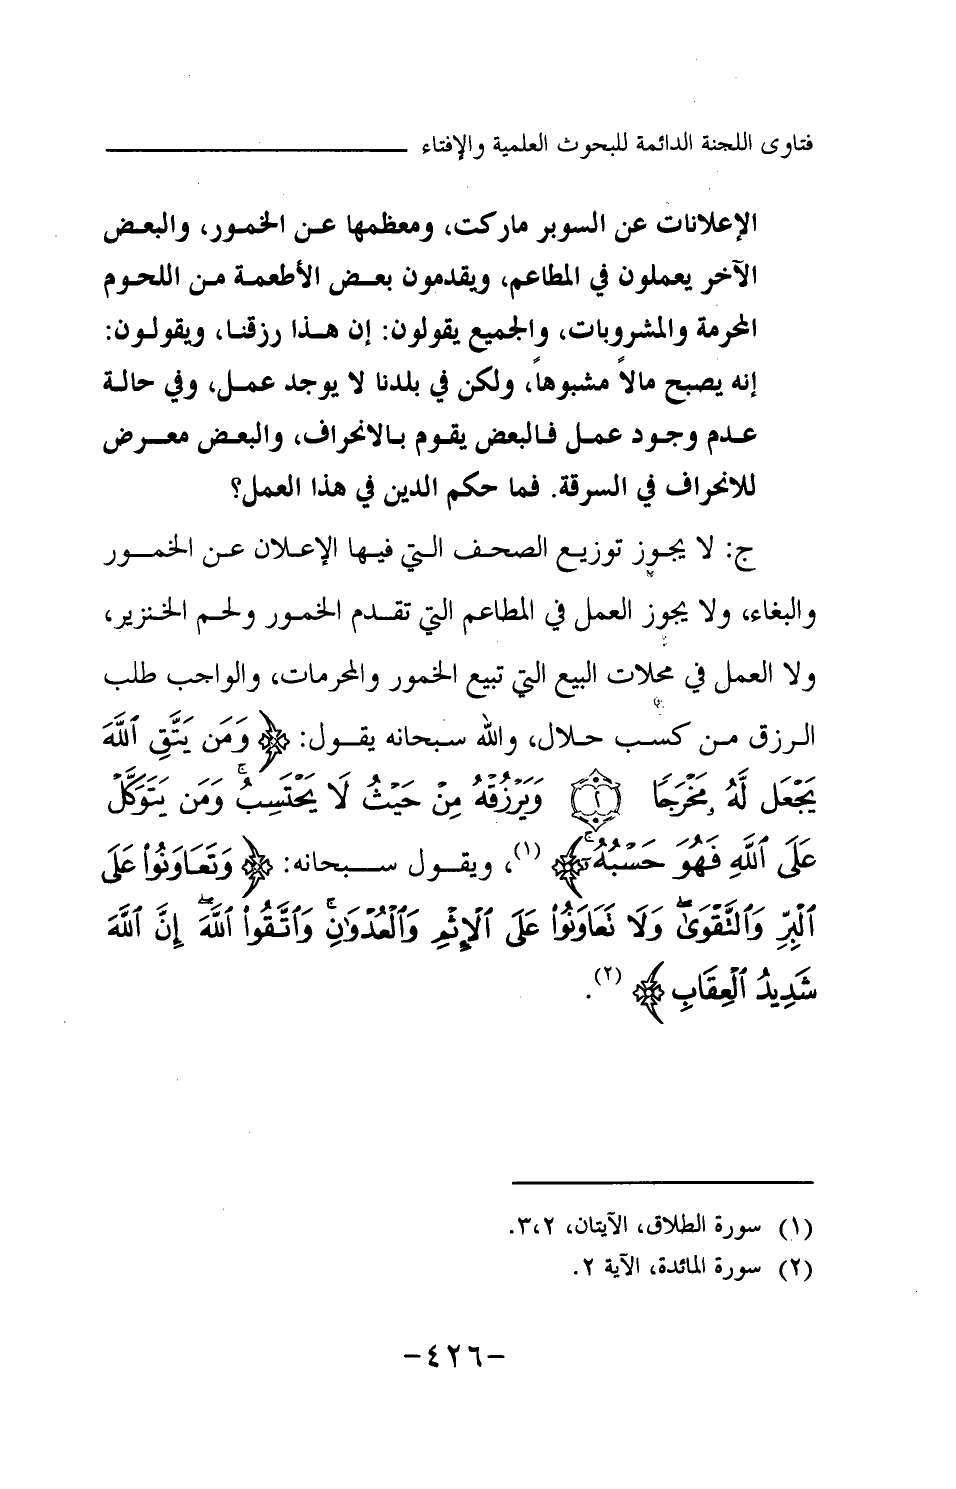 فتاوى اللجنة الدائمة للبحوث العلمية والإفتاء
الإعلانات عن السوبر ماركت، ومعظمها عن الخمور، والبعض
الآخر يعملون في المطاعم، ويقدمون بعض الأطعمة من اللحوم
المحرمة والمشروبات، والجميع يقولون: إن هذا رزقنا، ويقولون:
إنه يصبح مالاً مشبوهاً، ولكن في بلدنا لا يوجد عمل، وفي حالة
عدم وجود عمل فالبعض يقوم بالانحراف، والبعض معرض
للانحراف في السرقة. فما حكم الدين في هذا العمل؟
ج: لا يجوز توزيع الصحف التي فيها الإعلان عن الخمور
والبغاء، ولا يجوز العمل في المطاعم التي تقدم الخمور ولحم الخنزير،
ولا العمل في محلات البيع التي تبيع الخمور والمحرمات، والواجب طلب
الرزق من كسب حلال، والله سبحانه يقول: ﴿ وَمَن يَتَّقِ ٱللَّهَ
يَجْعَل لَّهُۥ مَخْرَجًا ٢ وَيَرْزُقْهُ مِنْ حَيْثُ لَا يَحْتَسِبُۚ وَمَن يَتَوَكَّلْ
عَلَى ٱللَّهِ فَهُوَ حَسْبُهُۥٓۚ ﴾ (١)، ويقول سبحانه: ﴿ وَتَعَاوَنُوا۟ عَلَى
ٱلْبِرِّ وَٱلتَّقْوَىٰۖ وَلَا تَعَاوَنُوا۟ عَلَى ٱلْإِثْمِ وَٱلْعُدْوَٰنِۚ وَٱتَّقُوا۟ ٱللَّهَۖ إِنَّ ٱللَّهَ
شَدِيدُ ٱلْعِقَابِ ﴾ (٢).
(١) سورة الطلاق، الآيتان، ٣،٢.
(٢) سورة المائدة، الآية ٢.
-٤٢٦-